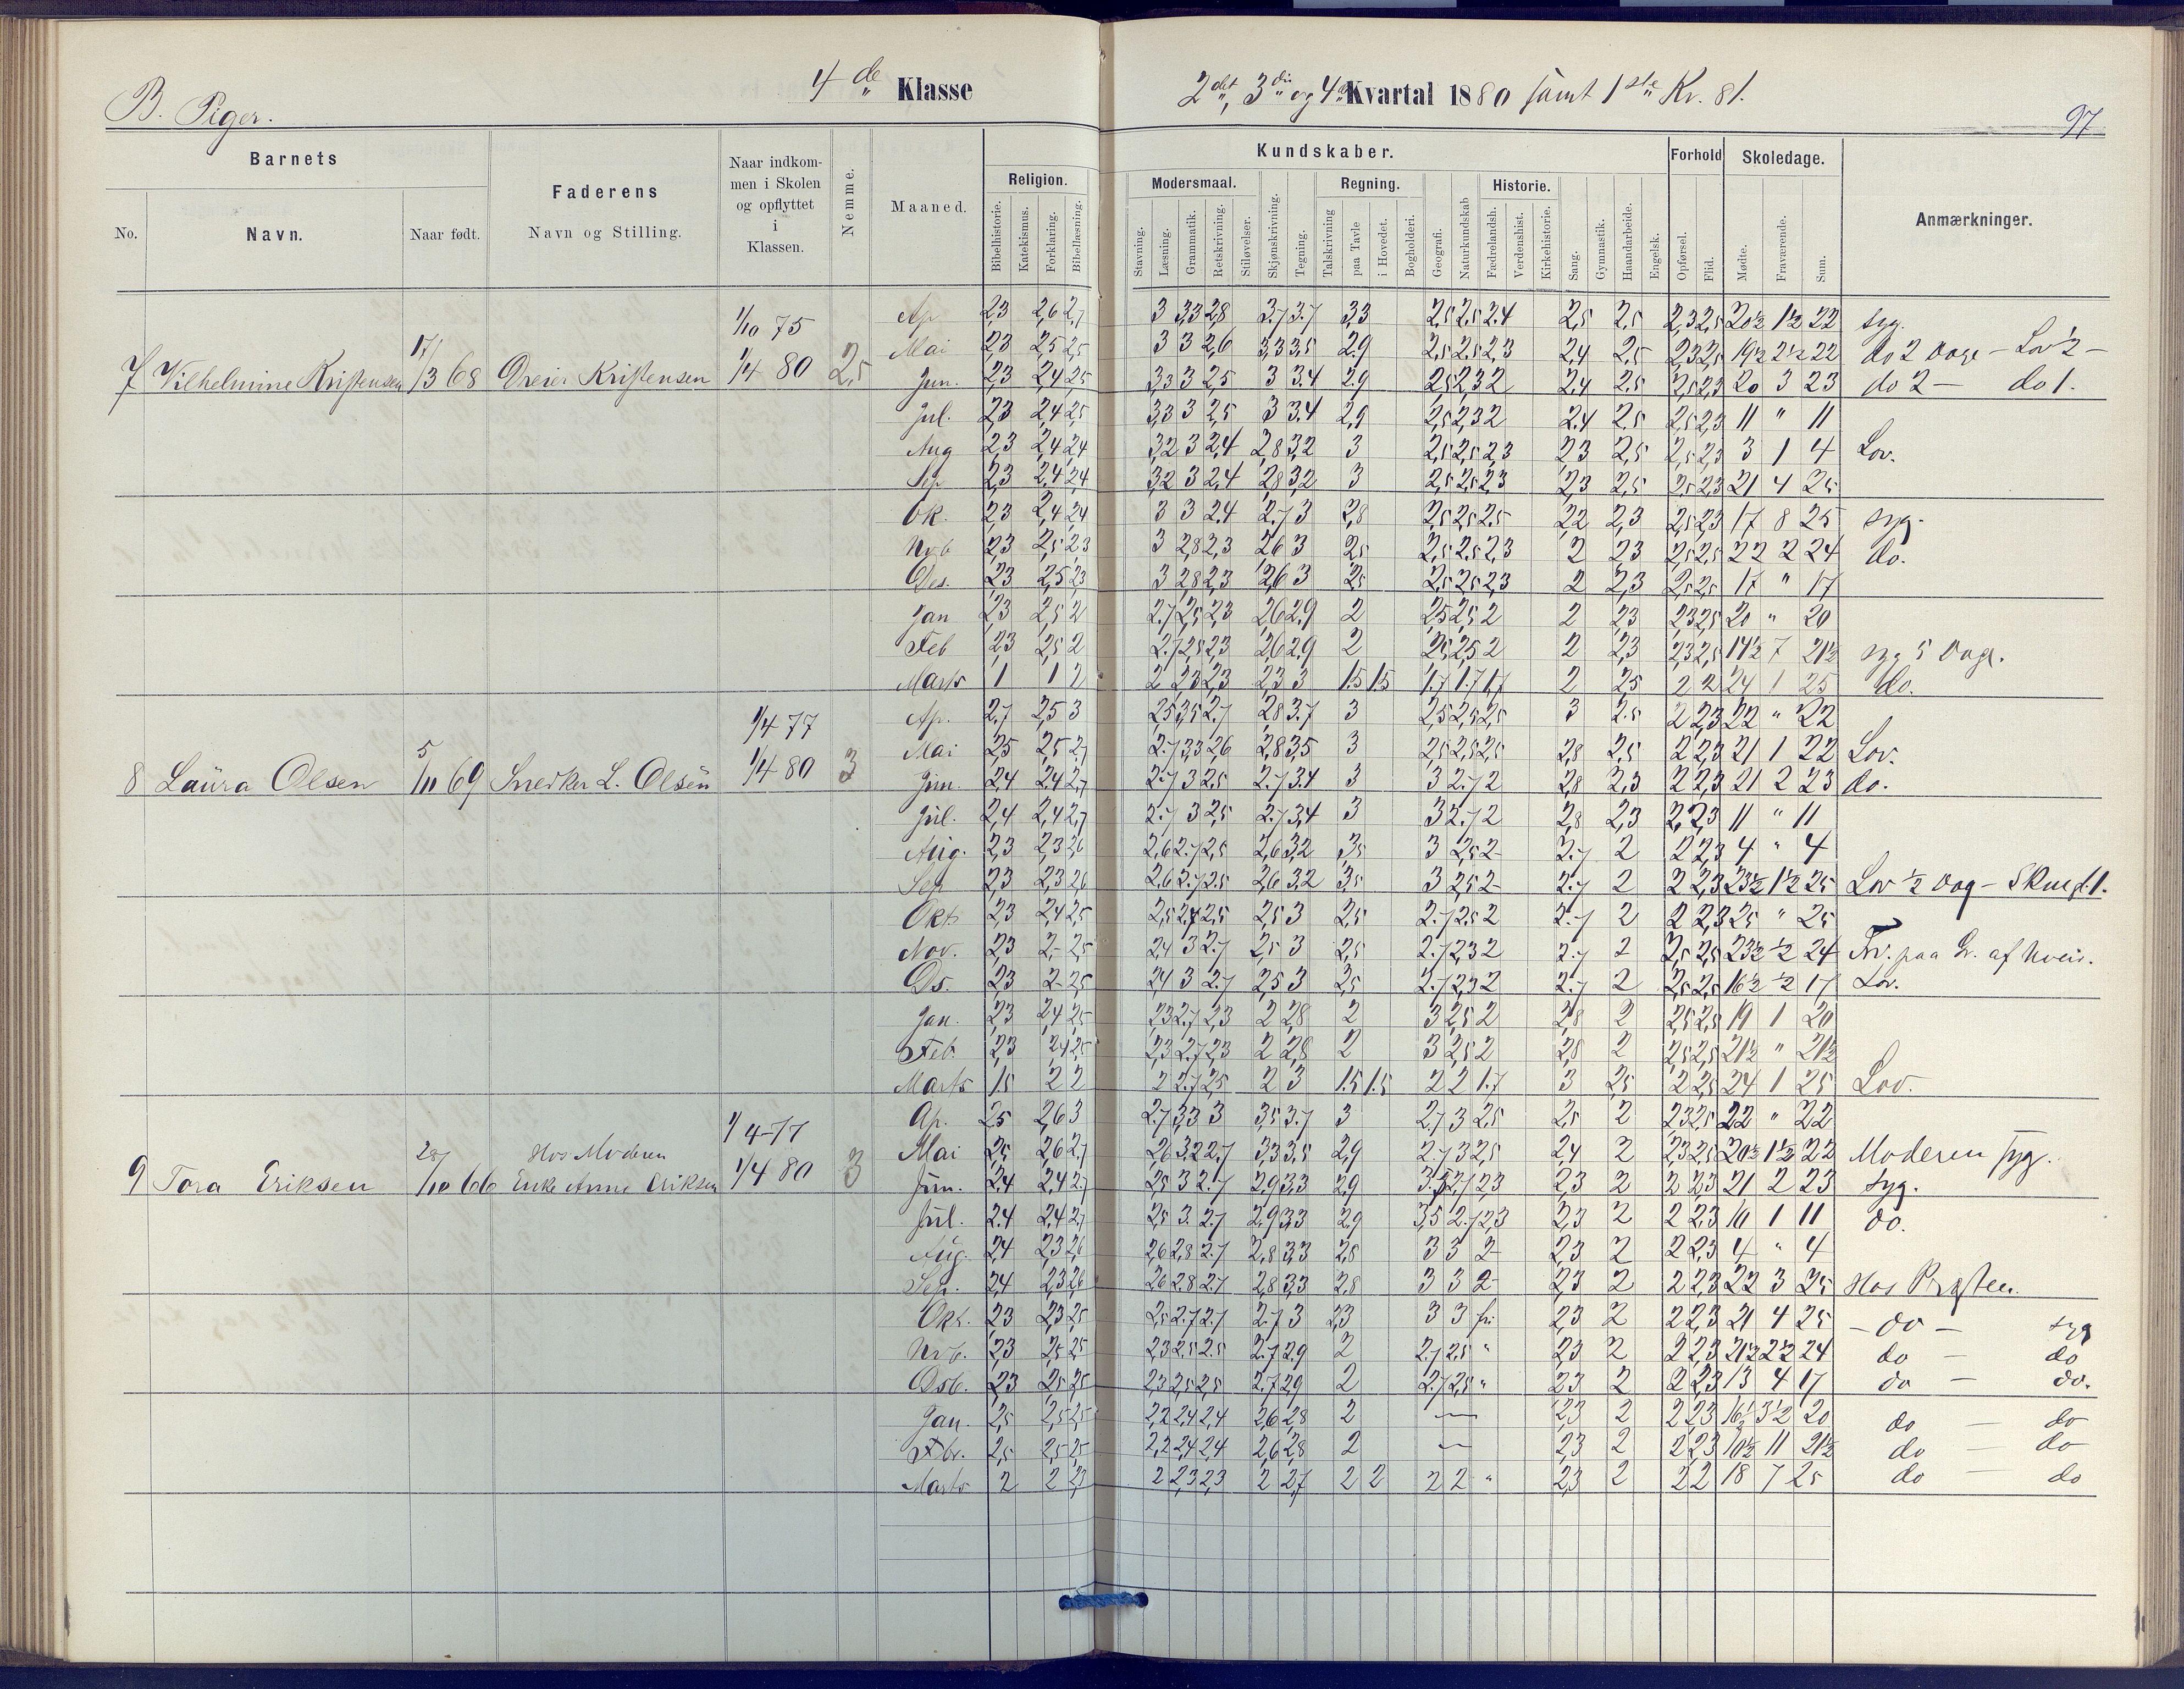 B. Piger.
4de Klasse
2det, 3die og 4de Kvartal 1880 samt 1ste Kv. 81.
97
Barnets
No.
Navn.
Naar født.
Faderens
Navn og Stilling.
Naar indkom-
men i Skolen
og opflyttet
i
Klassen.
Nemme.
Maaned.
Religion.
Bibelhistorie.
Katekismus.
Forklaring.
Bibellæsning.
Kundskaber.
Modersmaal.
Stavning.
Læsning.
Grammatik.
Retskrivning.
Stiløvelser.
Skjønskrivning.
Tegning.
Regning.
Talskrivning
paa Tavle
i Hovedet.
Bogholderi.
Geografi.
Naturkundskab
Historie.
Fædrelandsh.
Verdenshist.
Kirkehistorie.
Sang.
Gymnastik.
Haandarbeide.
Engelsk.
Forhold
Opførsel.
Flid.
Skoledage.
Mødte.
Fraværende.
Sum.
Anmærkninger.
7 Vilhelmine Kristensen 17/3 68 Dreier Kristensen 1/10 75 1/4 80 2,5
Ap 2,3 2,6 2,7 3 3,3 2,8 3,7 3,7 3,3 2,5 2,5 2,4 2,5 2,5 2,3 2,5 20½ 1½ 22 syg.
Mai 2,3 2,5 2,5 3 3 2,6 3,3 3,5 2,9 2,5 2,5 2,3 2,4 2,5 2,3 2,5 19½ 2½ 22 do 2 Dage - Lov ½ -
Jun. 2,3 2,4 2,5 3,3 3 2,5 3 3,4 2,9 2,5 2,3 2 2,4 2,5 2,5 2,3 20 3 23 do 2 - do 1.
Jul. 2,3 2,4 2,5 3,3 3 2,5 3 3,4 2,9 2,5 2,3 2 2,4 2,5 2,5 2,3 11 " 11
Aug 2,3 2,4 2,4 3,2 3 2,4 2,8 3,2 3 2,5 2,5 2,3 2,3 2,5 2,5 2,3 3 1 4 Lov.
Sep 2,3 2,4 2,4 3,2 3 2,4 2,8 3,2 3 2,5 2,5 2,3 2,3 2,5 2,5 2,3 21 4 25
Ok. 2,3 2,4 2,4 3 3 2,4 2,7 3 2,8 2,5 2,5 2,5 2,2 2,3 2,5 2,3 17 8 25 syg.
Nvb 2,3 2,5 2,3 3 2,8 2,3 2,6 3 2,5 2,5 2,5 2,3 2 2,3 2,5 2,5 22 2 24 do.
Des. 2,3 2,5 2,3 3 2,8 2,3 2,6 3 2,5 2,5 2,5 2,3 2 2,3 2,5 2,5 17 " 17
Jan 2,3 2,5 2 2,7 2,5 2,3 2,6 2,9 2 2,5 2,5 2 2 2,3 2,3 2,5 20 " 20
Feb 2,3 2,5 2 2,7 2,5 2,3 2,6 2,9 2 2,5 2,5 2 2 2,3 2,3 2,5 14½ 7 21½ syg 5 Dage.
Marts 1 1 2 2 2,3 2,3 2,3 3 1,5 1,5 1,7 1,7 1,7 2 2,5 2 2 24 1 25 do.
8 Laura Olsen 5/11 69 Snedker L. Olsen 1/4 77 1/4 80 3
Ap. 2,7 2,5 3 2,5 3,5 2,7 2,8 3,7 3 2,5 2,5 2,5 3 2,5 2 2,3 22 " 22
Mai 2,5 2,5 2,7 2,7 3,3 2,6 2,8 3,5 3 2,5 2,5 2,5 2,8 2,5 2 2,3 21 1 22 Lov.
Jun. 2,4 2,4 2,7 2,7 3 2,5 2,7 3,4 3 3 2,7 2 2,8 2,3 2 2,3 21 2 23 do.
Jul. 2,4 2,4 2,7 2,7 3 2,5 2,7 3,4 3 3 2,7 2 2,8 2,3 2 2,3 11 " 11
Aug. 2,3 2,3 2,6 2,6 2,7 2,5 2,6 3,2 3,5 3 2,5 2 2,7 2 2 2,3 4 " 4
Sep 2,3 2,3 2,6 2,6 2,7 2,5 2,6 3,2 3,5 3 2,5 2 2,7 2 2 2,3 23½ 1½ 25 Lov ½ Dag - Skurf. 1.
Okt 2,3 2,4 2,5 2,5 2,7 2,5 2,5 3 2,5 2,7 2,5 2 2,7 2 2 2,3 25 " 25
Nov. 2,3 2 2,5 2,4 3 2,7 2,5 3 2,5 2,7 2,3 2 2,7 2 2,5 2,5 23½ ½ 24 Frv. paa Gr. af Uveir.
Ds. 2,3 2 2,5 2,4 3 2,7 2,5 3 2,5 2,7 2,3 2 2,7 2 2,5 2,5 16½ ½ 17 Lov.
Jan. 2,3 2,4 2,5 2,3 2,7 2,3 2 2,8 2 3 2,5 2 2,8 2 2,5 2,5 19 1 20
Feb. 2,3 2,4 2,5 2,3 2,7 2,3 2 2,8 2 3 2,5 2 2,8 2 2,5 2,5 21½ " 21½
Marts 1,5 2 2 2 2,7 2,5 2 3 1,5 1,5 2 2 1,7 3 2,5 2 2,5 24 1 25 Lov.
9 Tora Eriksen 28/10 66 Hos Moderen Enke Anne Eriksen 1/4-77 1/4 80 3
Ap. 2,5 2,6 3 2,7 3,3 3 3,5 3,7 3 2,7 3 2,5 2,5 2 2,3 2,5 22 " 22
Mai 2,5 2,6 2,7 2,6 3,2 2,7 3,3 3,5 2,9 2,7 3 2,5 2,4 2 2,3 2,5 20½ 1½ 22 Moderen syg.
Jun. 2,4 2,4 2,7 2,5 3 2,7 2,9 3,3 2,9 3,5 2,7 2,3 2,3 2 2 2,3 21 2 23 syg.
Jul. 2,4 2,4 2,7 2,5 3 2,7 2,9 3,3 2,9 3,5 2,7 2,3 2,3 2 2 2,3 10 1 11 do.
Aug. 2,4 2,3 2,6 2,6 2,8 2,7 2,8 3,3 2,8 3 3 2 2,3 2 2 2,3 4 " 4
Sep. 2,4 2,3 2,6 2,6 2,8 2,7 2,8 3,3 2,8 3 3 2 2,3 2 2 2,3 22 3 25 Hos Præsten.
Okt. 2,3 2,3 2,5 2,5 2,7 2,7 2,7 3 2,3 3 3 fri 2,3 2 2 2,3 21 4 25 - do - syg
Nvb. 2,3 2,5 2,5 2,3 2,5 2,5 2,7 2,9 2 2,7 2,5 " 2,3 2 2 2,3 21½ 2½ 24 do - do
Dsb. 2,3 2,5 2,5 2,3 2,5 2,5 2,7 2,9 2 2,7 2,5 " 2,3 2 2 2,3 13 4 17 do - do.
Jan. 2,5 2,5 2,5 2,2 2,4 2,4 2,6 2,8 2 — 2,3 2 2 2,3 16½ 3½ 20 do - do
Fbr. 2,5 2,5 2,5 2,2 2,4 2,4 2,6 2,8 2 — 2,3 2 2 2,3 10½ 11 21½ do - do
Marts 2 2 2,3 2 2,3 2,3 2 2,7 2 2 2 2 " 2,3 2 2 2 18 7 25 do - do